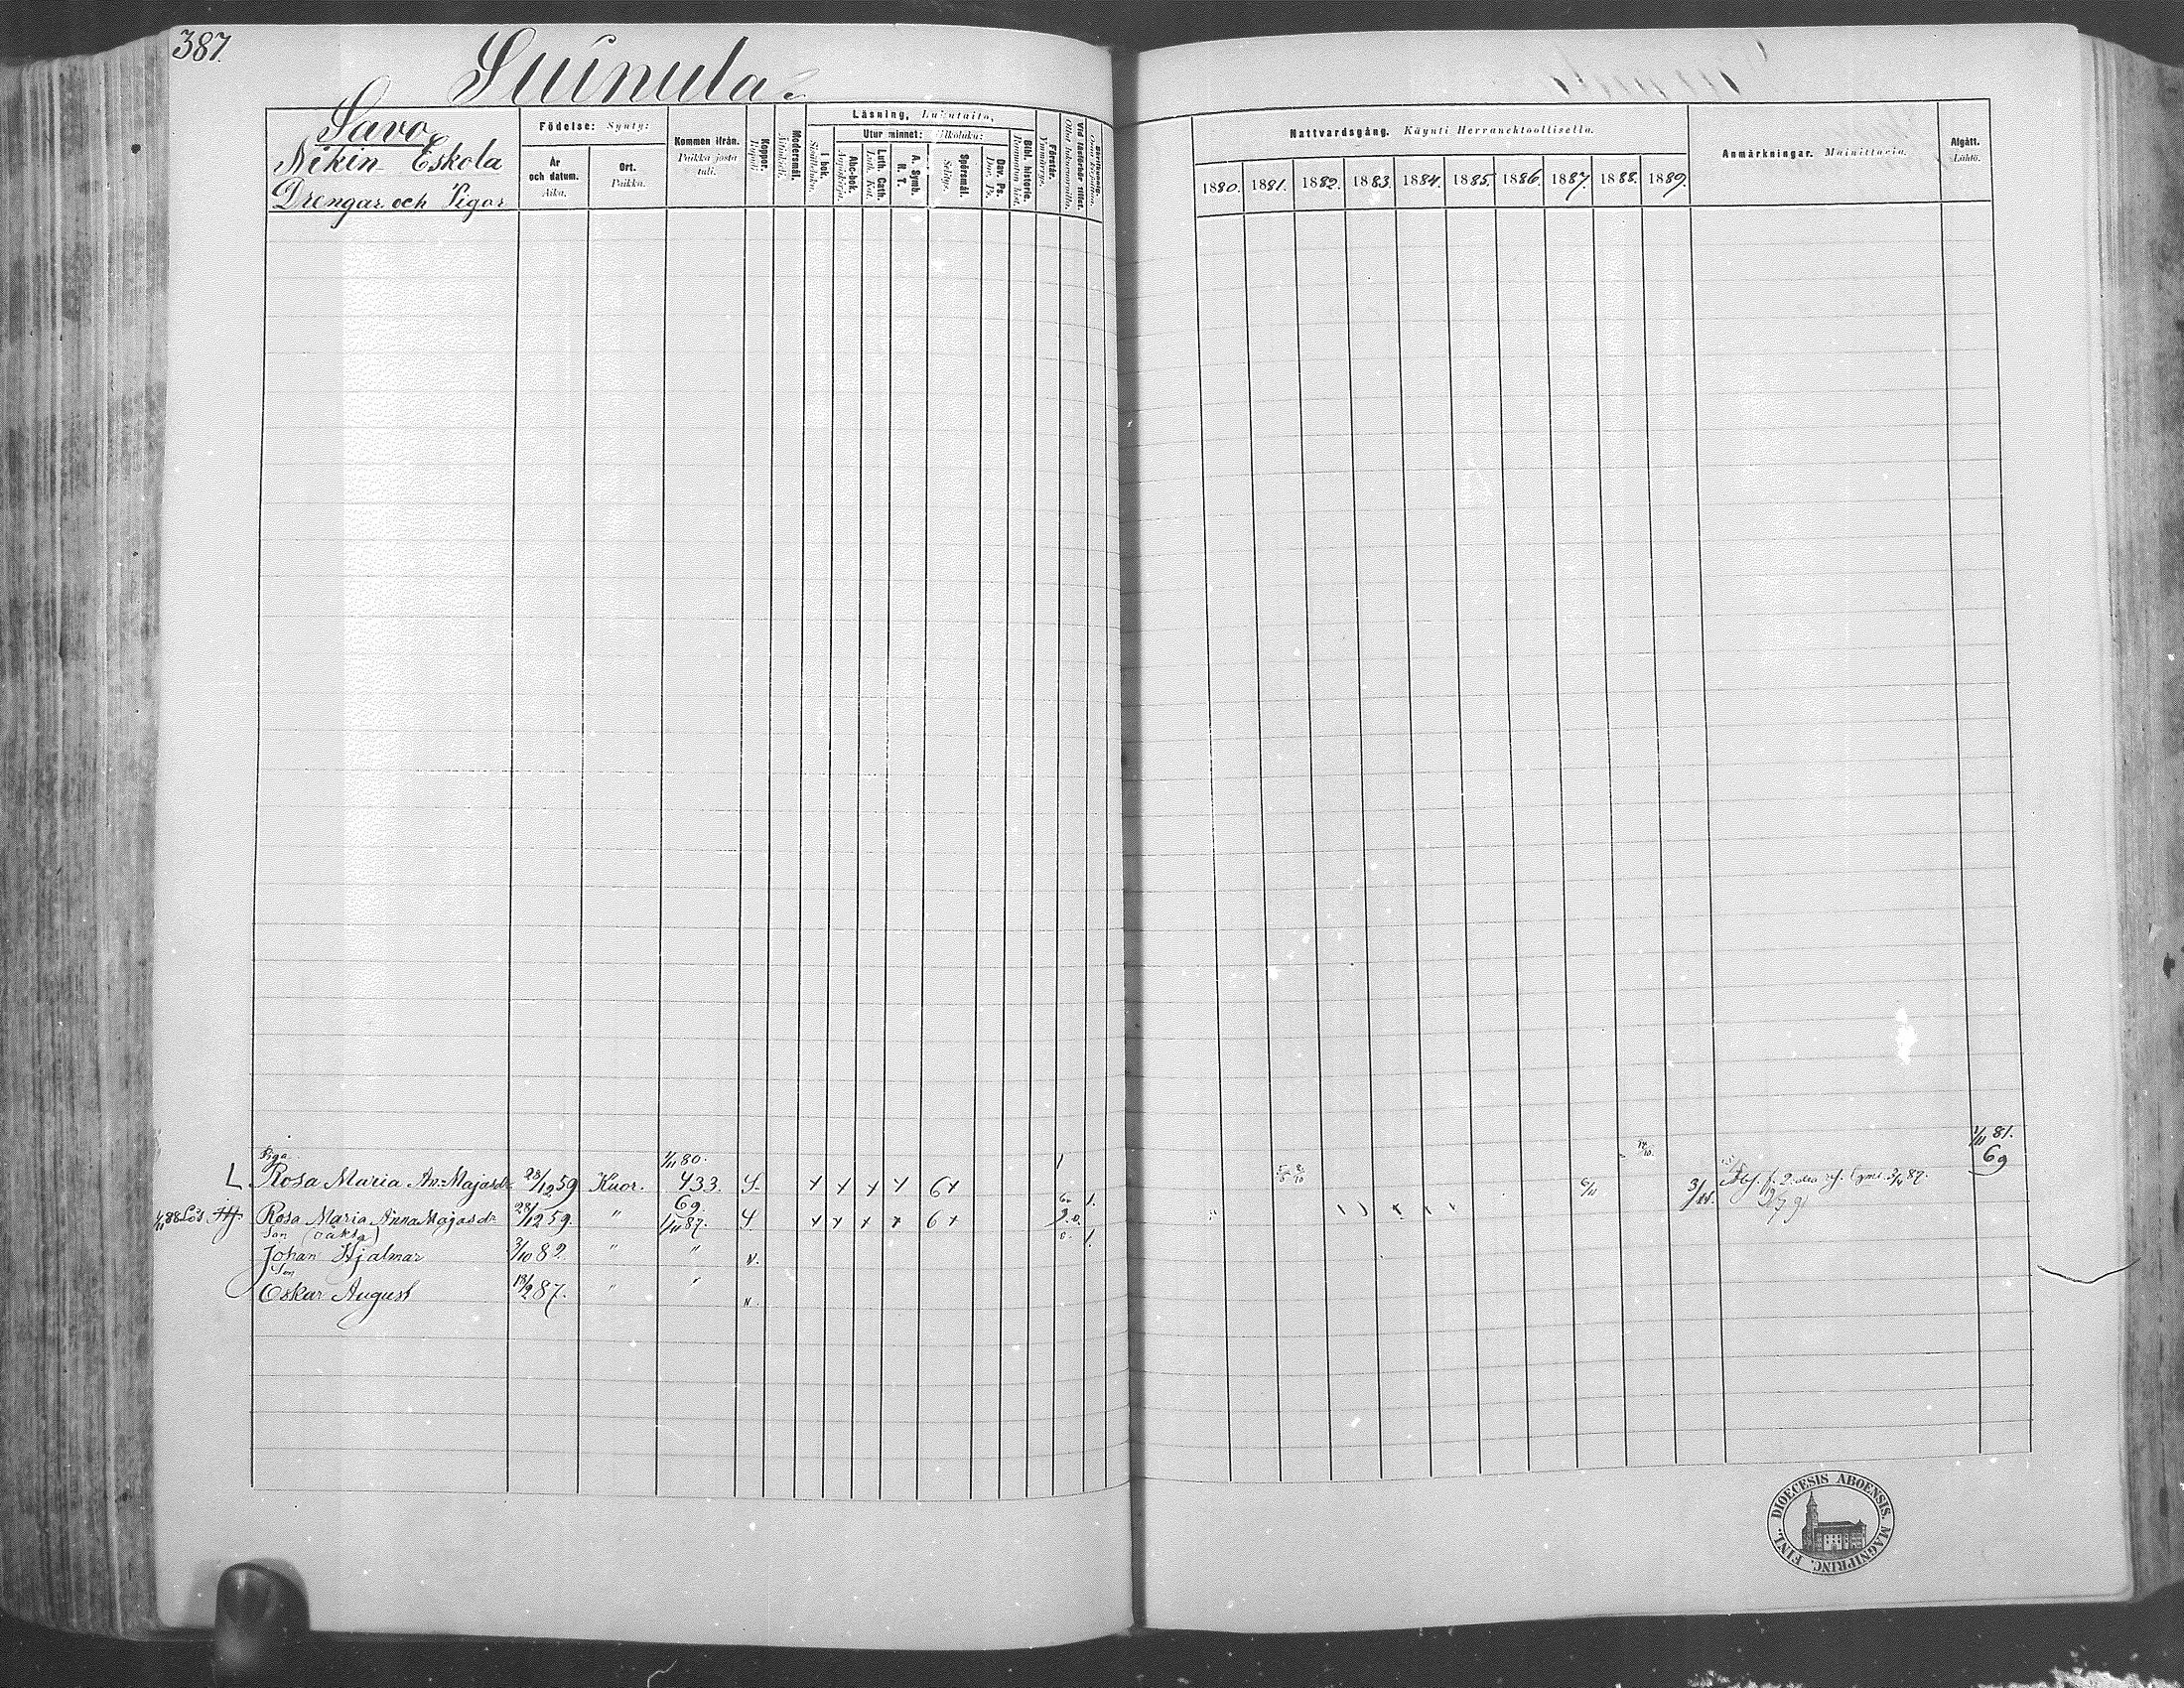 387.
Suinula.
Savo
Nikin Eskola
Drengar och Pigor
Födelse: Synty:
År och datum. Aika.
Ort. Paikka.
Kommen ifrån. Paikka josta tuli.
Koppor. Rupuli.
Modersmål. Äitinkieli.
Läsning, Lukutaito,
I bok. Sisältäluku.
Utur minnet: Ulkoluku:
Abc-bok. Aapiskirja.
Luth. Cath. Luth. Kat.
A. Symb. H. T.
Spörsmål. Selitys.
Dav. Ps. Dav. Ps.
Bibl. historie. Raamatun hist.
Förstår. Ymmärrys.
Vid läsförhör tillst. Ollut lukuvuoroilla.
Nattvardsgång. Käynti Herranehtoollisella.
1880. 1881. 1882. 1883. 1884. 1885. 1886. 1887. 1888. 1889.
Anmärkningar. Mainittavia.
Afgått. Lähtö.
Piga. 1/11 80. 1/11 81.
L. Rosa Maria An: Majasdr 28/12 59 Kuor. 433. 69
6/11 3/11.
1/11 88 Lös Rosa Maria Anna Majasdr 28/12 59. " 69. 1/11 87.
Son (oäkta)
Johan Hjalmar 3/10 82. " " v.
Son
Oskar August 18/2 87. " " v.
DIOECESIS ABOENSIS. MAGNIPRINC. FINL.